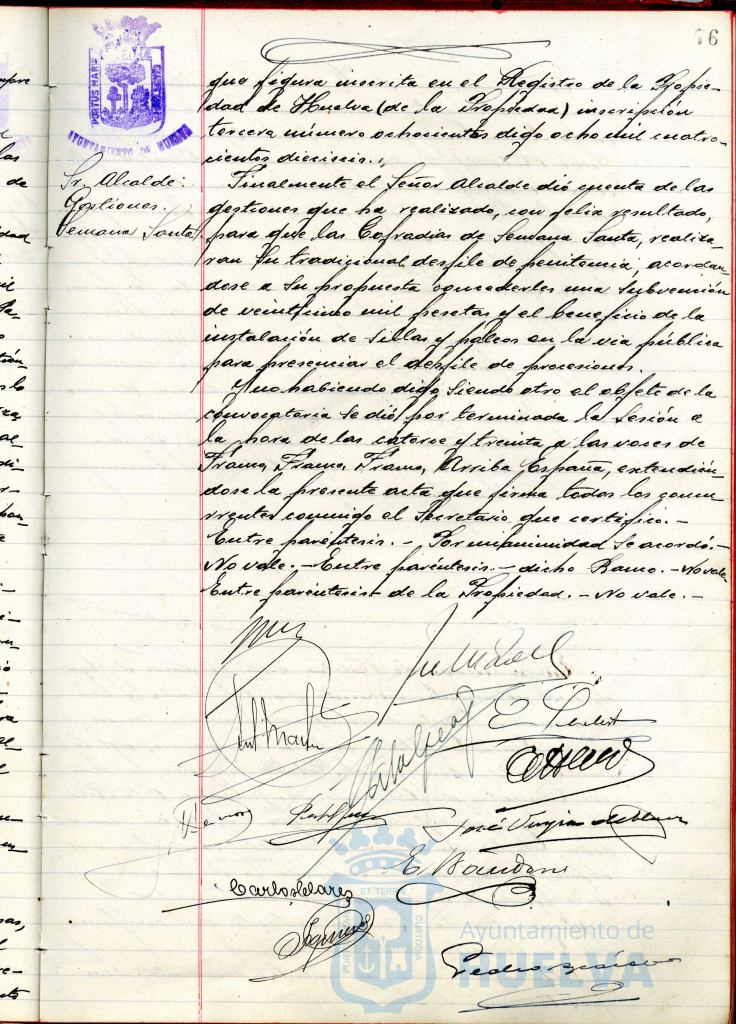 76
PORTUS MARIS
AYUNTAMIENTO DE HUELVA
que figura inscrita en el Registro de la Propie-
dad de Huelva (de la Propiedad) inscripción
tercera número ochocientos digo ocho mil cuatro-
cientos dieciseis.,
Sr. Alcalde:
Gestiones.
Semana Santa
Finalmente el Señor Alcalde dió cuenta de las
gestiones que ha realizado, con feliz resultado,
para que las Cofradias de Semana Santa, realiza-
ran su tradicional desfile de penitencia, acordan-
dose a su propuesta concederles una subvención
de veinticinco mil pesetas y el beneficio de la
instalación de sillas y palcos en la via pública
para presenciar el desfile de procesiones.
Y no habiendo digo siendo otro el objeto de la
convocatoria se dió por terminada la sesión a
la hora de las catorce y treinta a las voces de
Franco, Franco, Franco, Arriba España, extendién-
dose la presente acta que firma todos los concu-
rrentes conmigo el Secretario que certifico.-
Entre paréntesis. - Por unanimidad se acordó.-
No vale. - Entre paréntesis. - dicho Ramo. - No vale.
Entre paréntesis - de la Propiedad. - No vale. -
Carlos
Pedro
José
Ayuntamiento de
HUELVA